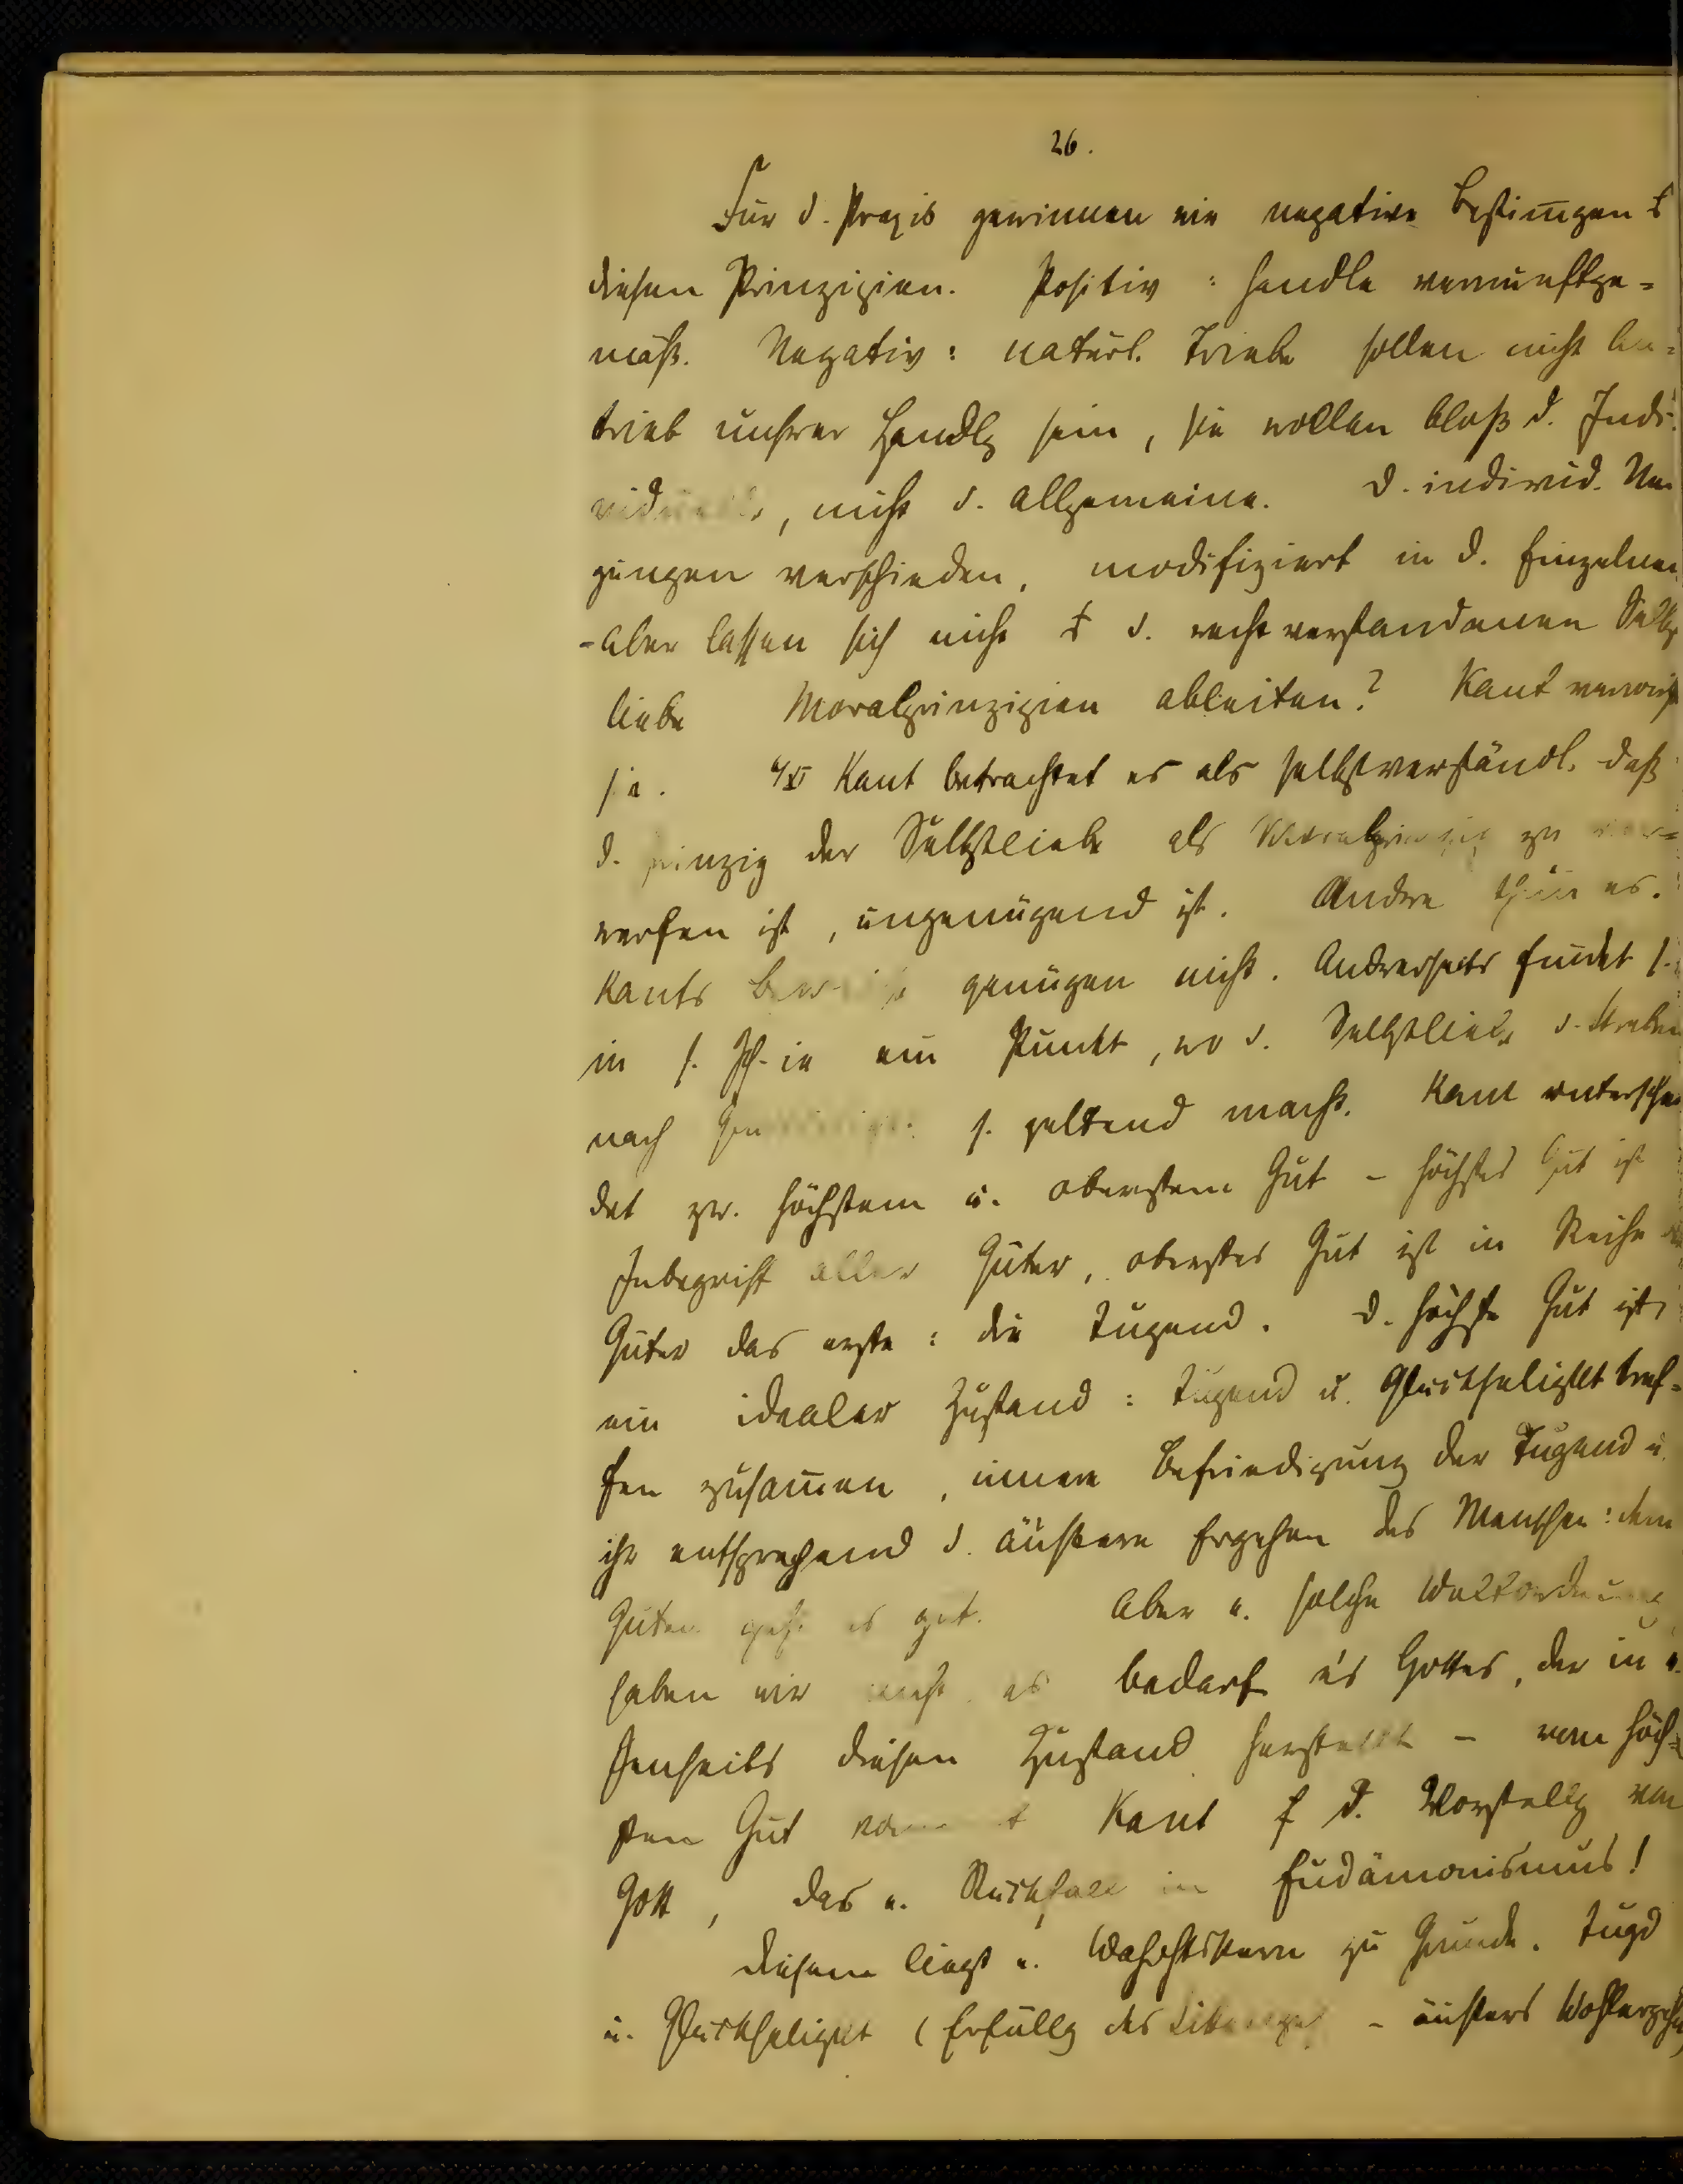 26.
Für d. Praxis gewinnen wir negative Bestimgen
diesen Prinzipien. Positiv: handle vernunftge-
mäß. Negativ: natürl. Triebe sollen nicht An-
trieb unsrer Handlg sein, sie wollen bloß d. Indi-
, nicht d. Allgemeine. D. individ. Nei
gungen verschieden, modifiziert in d. Einzelnen
- aber lassen sich nicht d. recht verstandenen Selbst
liebe Moralprinzipien ableiten? Kant verwirft
sie. Kant betrachtet es als selbstverständl. daß
d. Prinzip der Selbstliebe als Moralprinzip zu ver-
werfen ist, ungenügend ist. Andre thun es.
Kants Beweise genügen nicht. Andrerseits findet s.
in s. ein Punkt, wo d. Selbstliebe d. Streben
nach s. geltend macht. Kant unterschei
det zw. höchstem u. oberstem Gut - höchstes Gut ist
Inbegriff aller Güter, oberstes Gut ist in Reihe
Güter das erste: die Tugend. D. höchste Gut ist
ein idealer Zustand: Tugend u. Glückseligkt tref-
fen zusamen, innere Befriedigung der Tugend u.
ihr entsprechend d. äußere Ergehen des Menschen: dem
Guten geht es gut. Aber e. solche Weltordnung
haben wir nicht, es bedarf e's Gottes, der in e.
Jenseits diesen Zustand herstellt - vom höch-
sten Gut kommt Kant d. Vorstellg von
Gott, das e. Rückfall in Eudämonismus!
Diesem liegt e. Wahrhtskern zu Grunde. Tugd
u. Glückseligkt (Erfüllg des - äußers Wohlergehn)